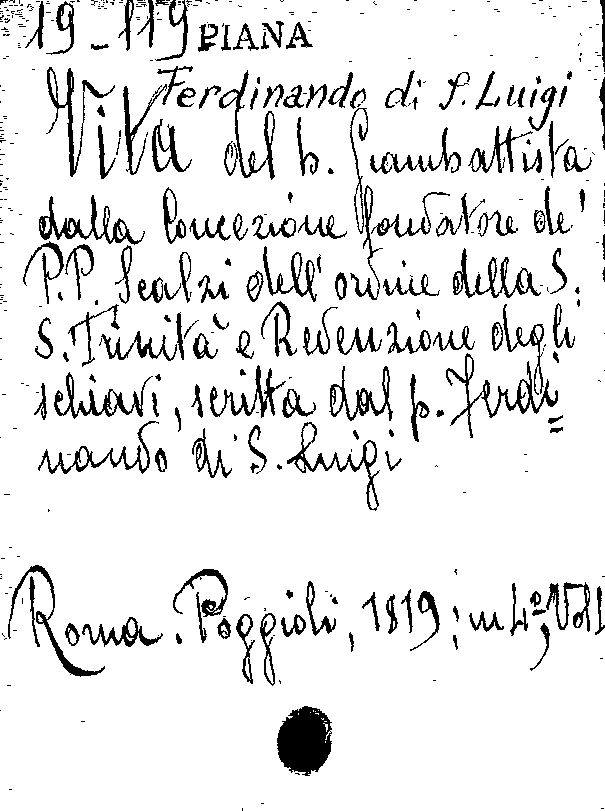 19-119 PIANA
Ferdinando di S. Luigi
Vita del b. Giambattista
dalla Concezione fondatore de'
P.P. Scalzi dell'ordine della S.
S. Trinità e Redenzione degli
schiavi, scritta dal p. Ferdi=
nando di S. Luigi
Roma. Poggioli, 1819; in 4º, Vol 1